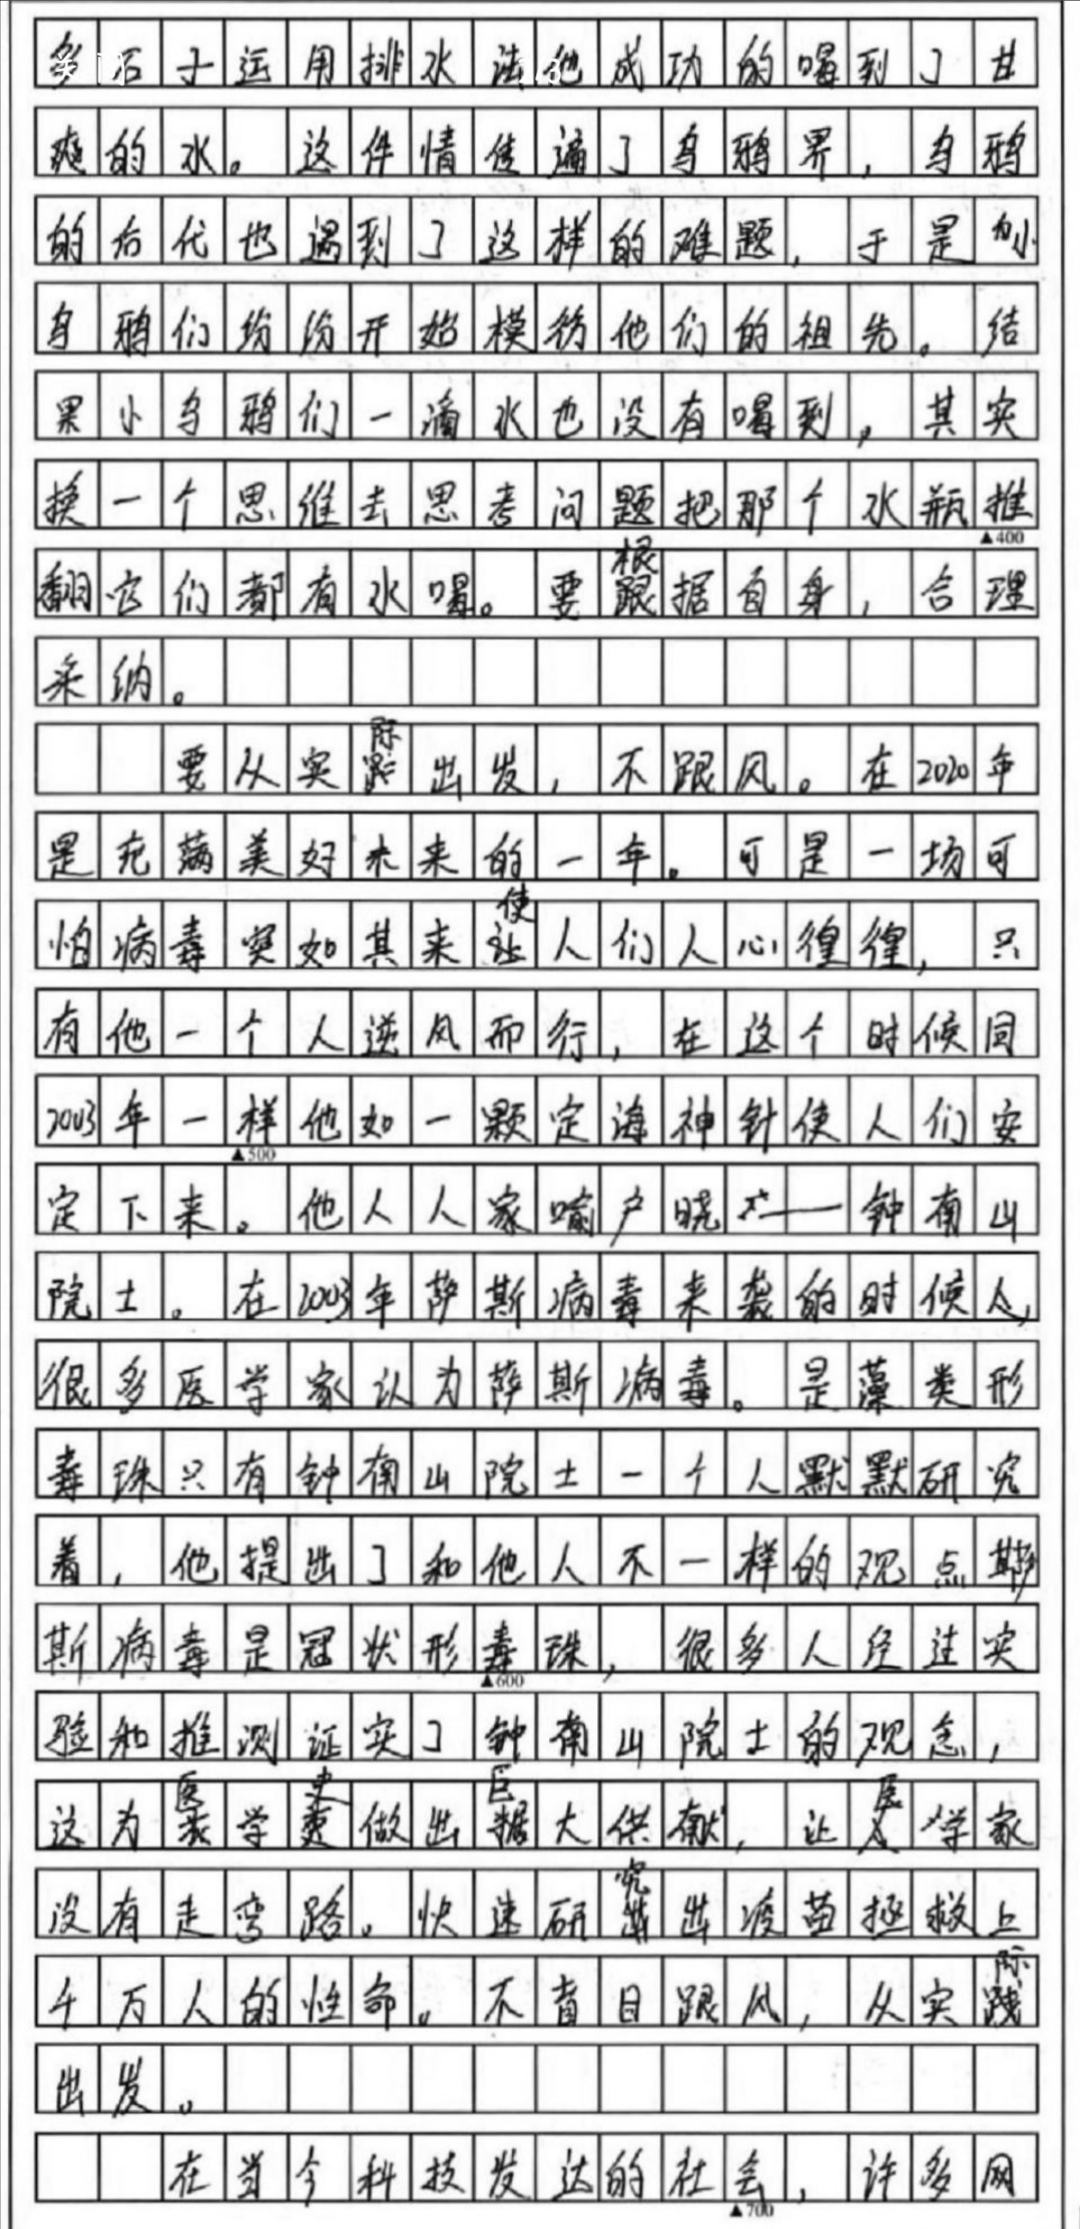 多石子运用排水法他成功的喝到了甘
爽的水。这件情使遍了乌鸦界，乌鸦
的后代也遇到了这样的难题，于是小
乌鸦们纷纷开始模彷他们的祖先。结
果小乌鸦们一滴水也没有喝到，其实
换一个思维去思考问题把那个水瓶推
▲400
翻它们都有水喝。要根据自身，合理
采纳。
要从实际出发，不跟风。在2020年
是充满美好未来的一年。可是一场可
怕病毒突如其来使人们人心徨徨，只
有他一个人逆风而行，在这个时候同
2003年一样他如一颗定海神针使人们安
▲500
定下来。他人人家喻户晓——钟南山
院士。在2003年萨斯病毒来袭的时候，
很多医学家认为萨斯病毒。是藻类形
毒珠只有钟南山院士一个人默默研究
着，他提出了和他人不一样的观点
斯病毒是冠状形毒珠，很多人经过实
▲600
验和推测证实了钟南山院士的观念，
这为医学史做出巨大供献，让医学家
没有走弯路。快速研究出疫苗拯救上
千万人的性命。不盲目跟风，从实际
出发。
在当今科技发达的社会，许多网
▲700